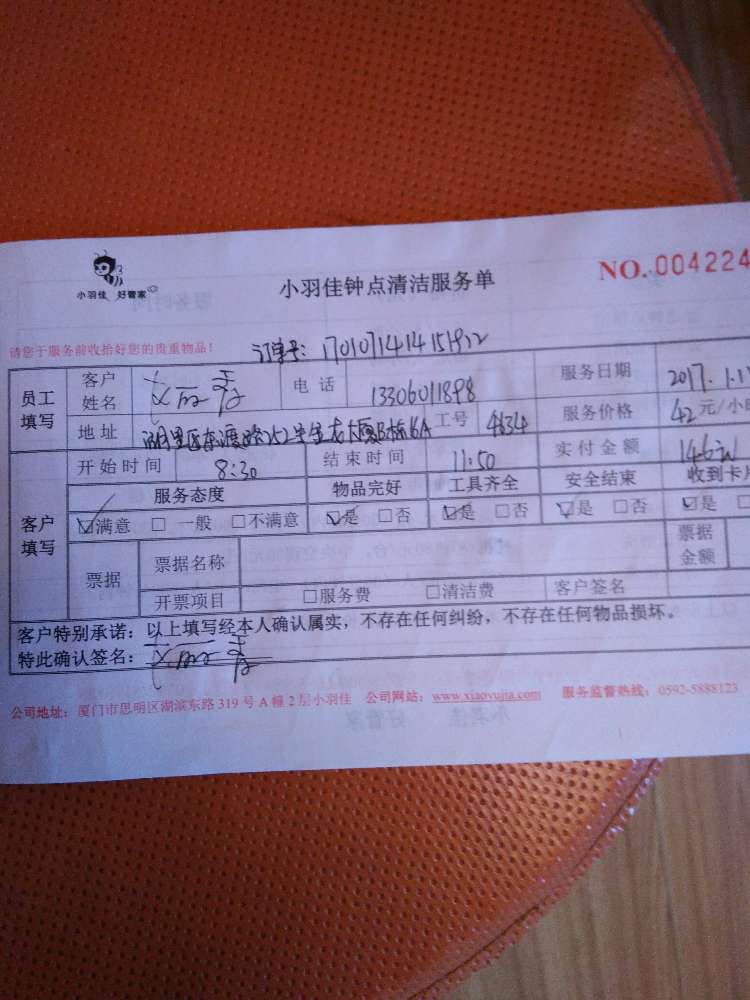 小羽佳 好管家
小羽佳钟点清洁服务单
NO. 004224
请您于服务前收拾好您的贵重物品！
订单号：1701071414151922
员工填写
客户姓名
电话 13306011898
服务日期 2017.1.1
地址 湖里区东渡路252号
工号 4634
服务价格 42元/小
开始时间 8:30
结束时间 11:50
实付金额 146元
客户填写
服务态度 物品完好 工具齐全 安全结束 收到卡片
☑满意 □一般 □不满意 ☑是 □否 ☑是 □否 ☑是 □否 ☑是 □
票据
票据名称
票据金额
开票项目 □服务费 □清洁费 客户签名
客户特别承诺：以上填写经本人确认属实，不存在任何纠纷，不存在任何物品损坏。
特此确认签名：
公司地址：厦门市思明区湖滨东路319号A幢2层小羽佳 公司网站：www.xiaoyujia.com 服务监督热线：0592-5888123